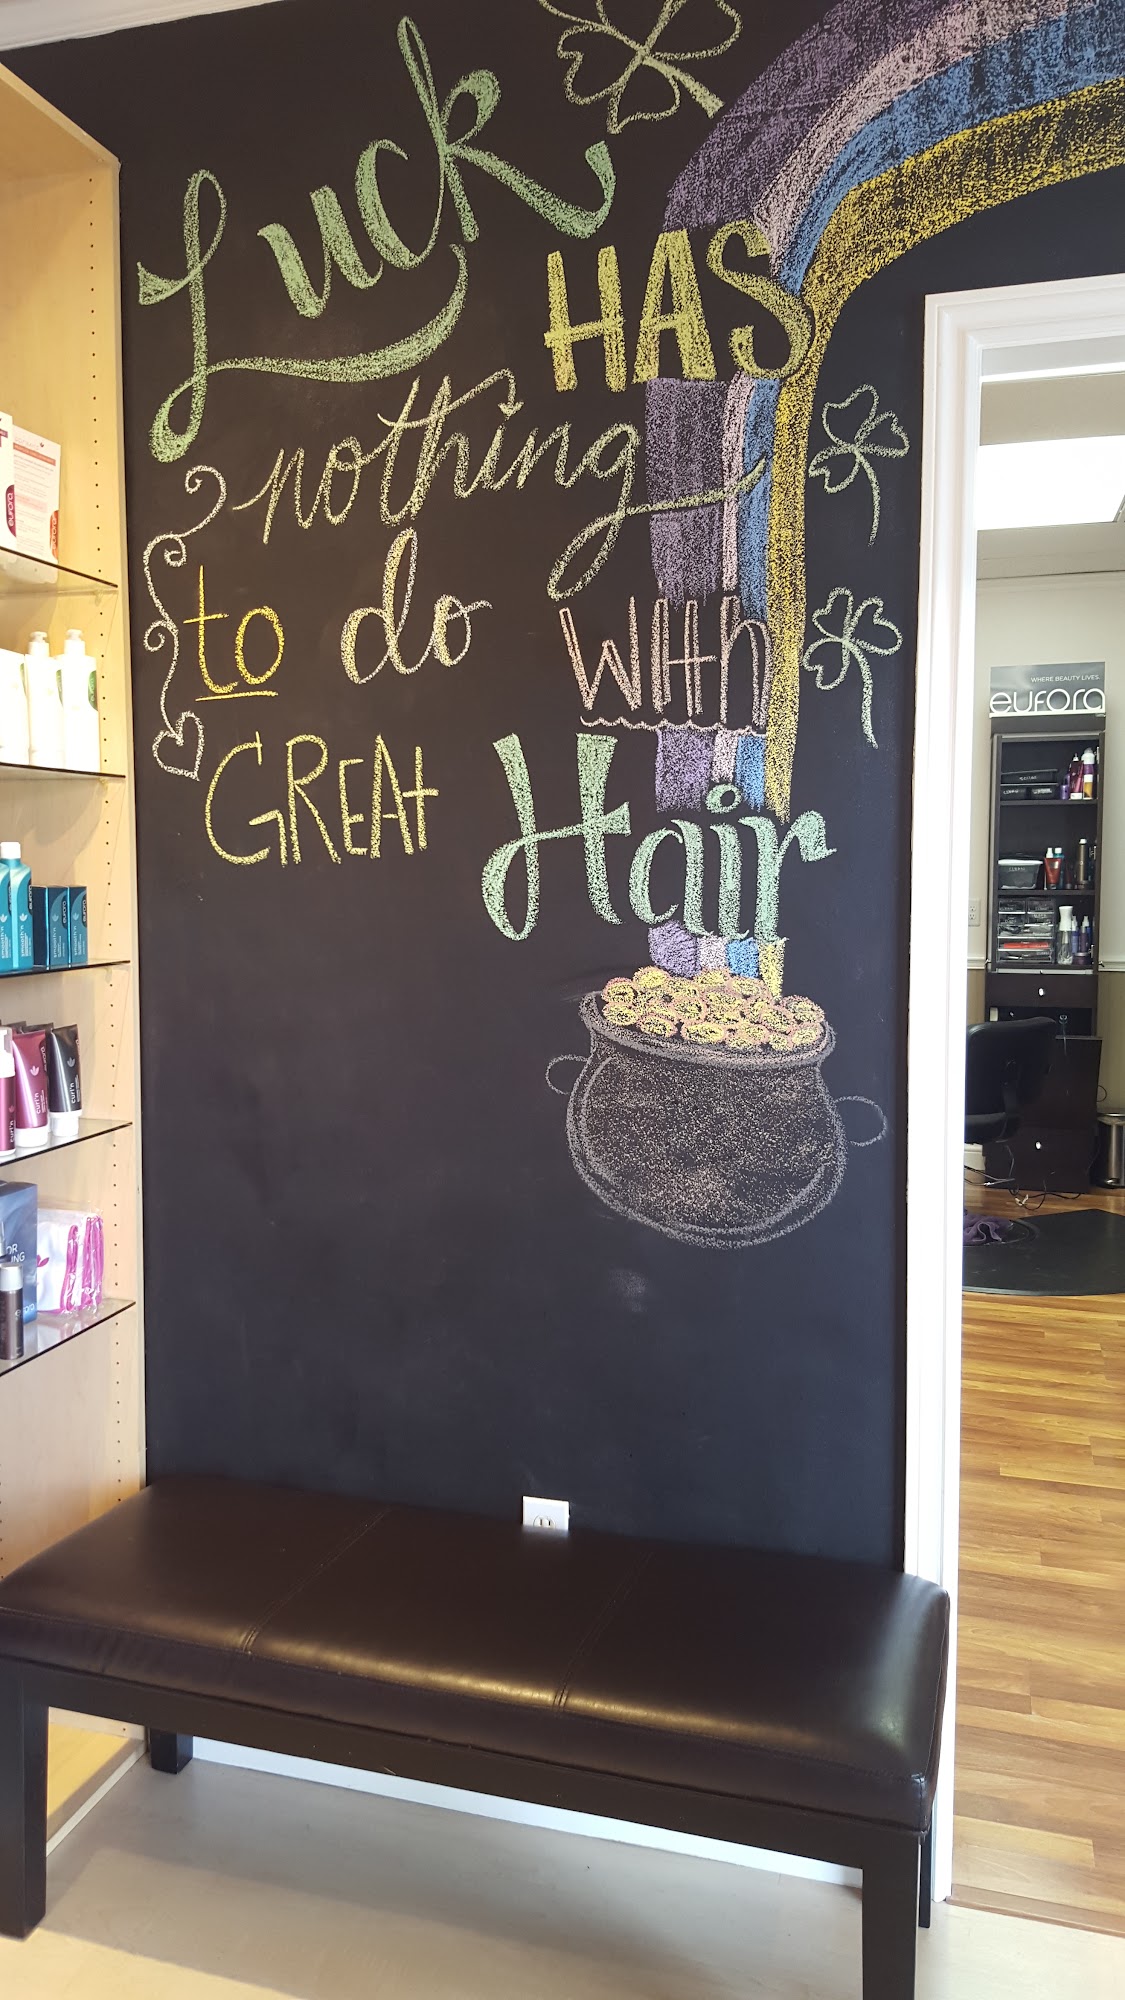 Luck
HAS
nothing
to do with
GREAt
Hair
WHERE BEAUTY LIVES.
eufora
eufora
eufora
curl'n